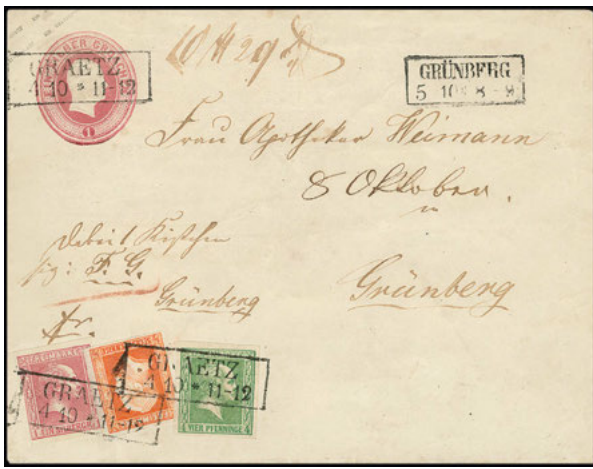 GRAETZ
4 10 * 11-12
1
GRÜNBERG
5 10 * 8 - 9
Frau Apotheker Weimann
8 Oktober.
Dabei 1 Kistchen
sig: F. G.
Grünberg
Grünberg
fr.
GRAETZ
4 10 * 11-12
GRAETZ
4 10 * 11-12
4 VIER PFENNINGE 4